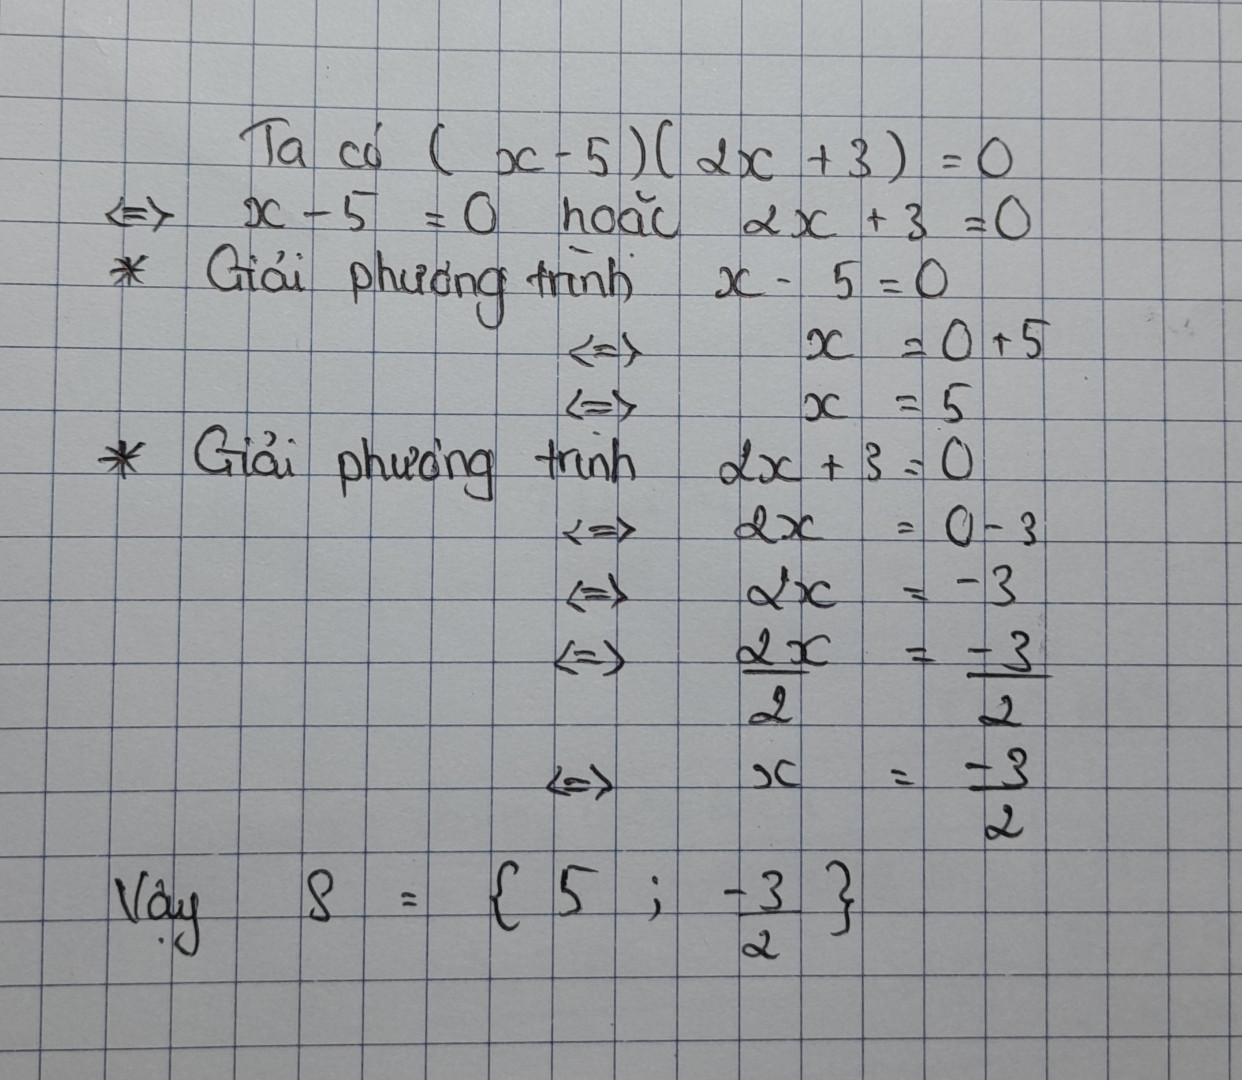 Ta có ( x - 5 )( 2x + 3 ) = 0
<=> x - 5 = 0 hoặc 2x + 3 = 0
* Giải phương trình x - 5 = 0
<=> x = 0 + 5
<=> x = 5
* Giải phương trình 2x + 3 = 0
<=> 2x = 0 - 3
<=> 2x = -3
<=> 2x/2 = -3/2
<=> x = -3/2
Vậy S = { 5 ; -3/2 }